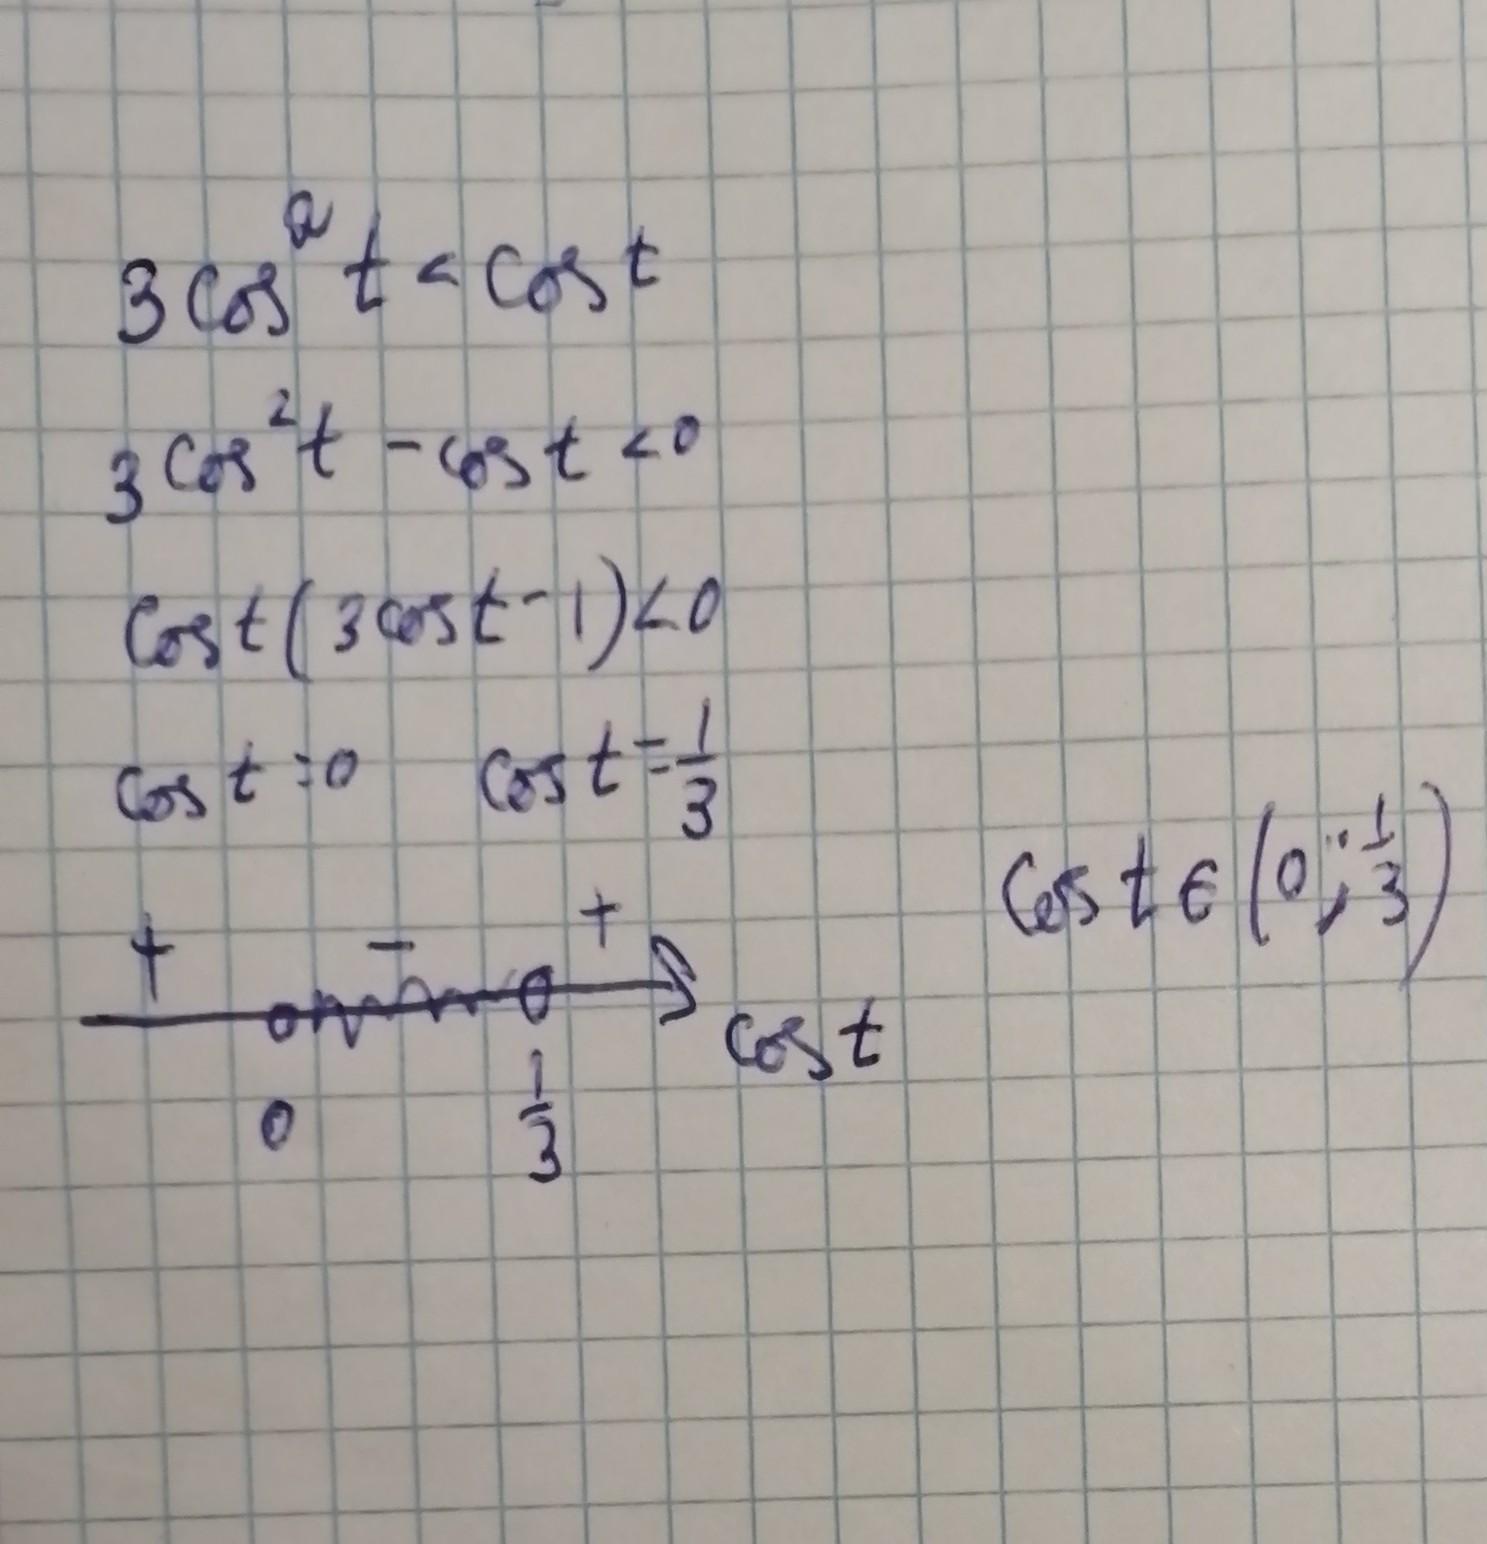 3 cos² t < cos t
3 cos² t - cos t < 0
cos t (3 cos t - 1) < 0
cos t = 0 cos t = 1/3
+ - +
cos t ∈ (0; 1/3)
cos t
0 1/3